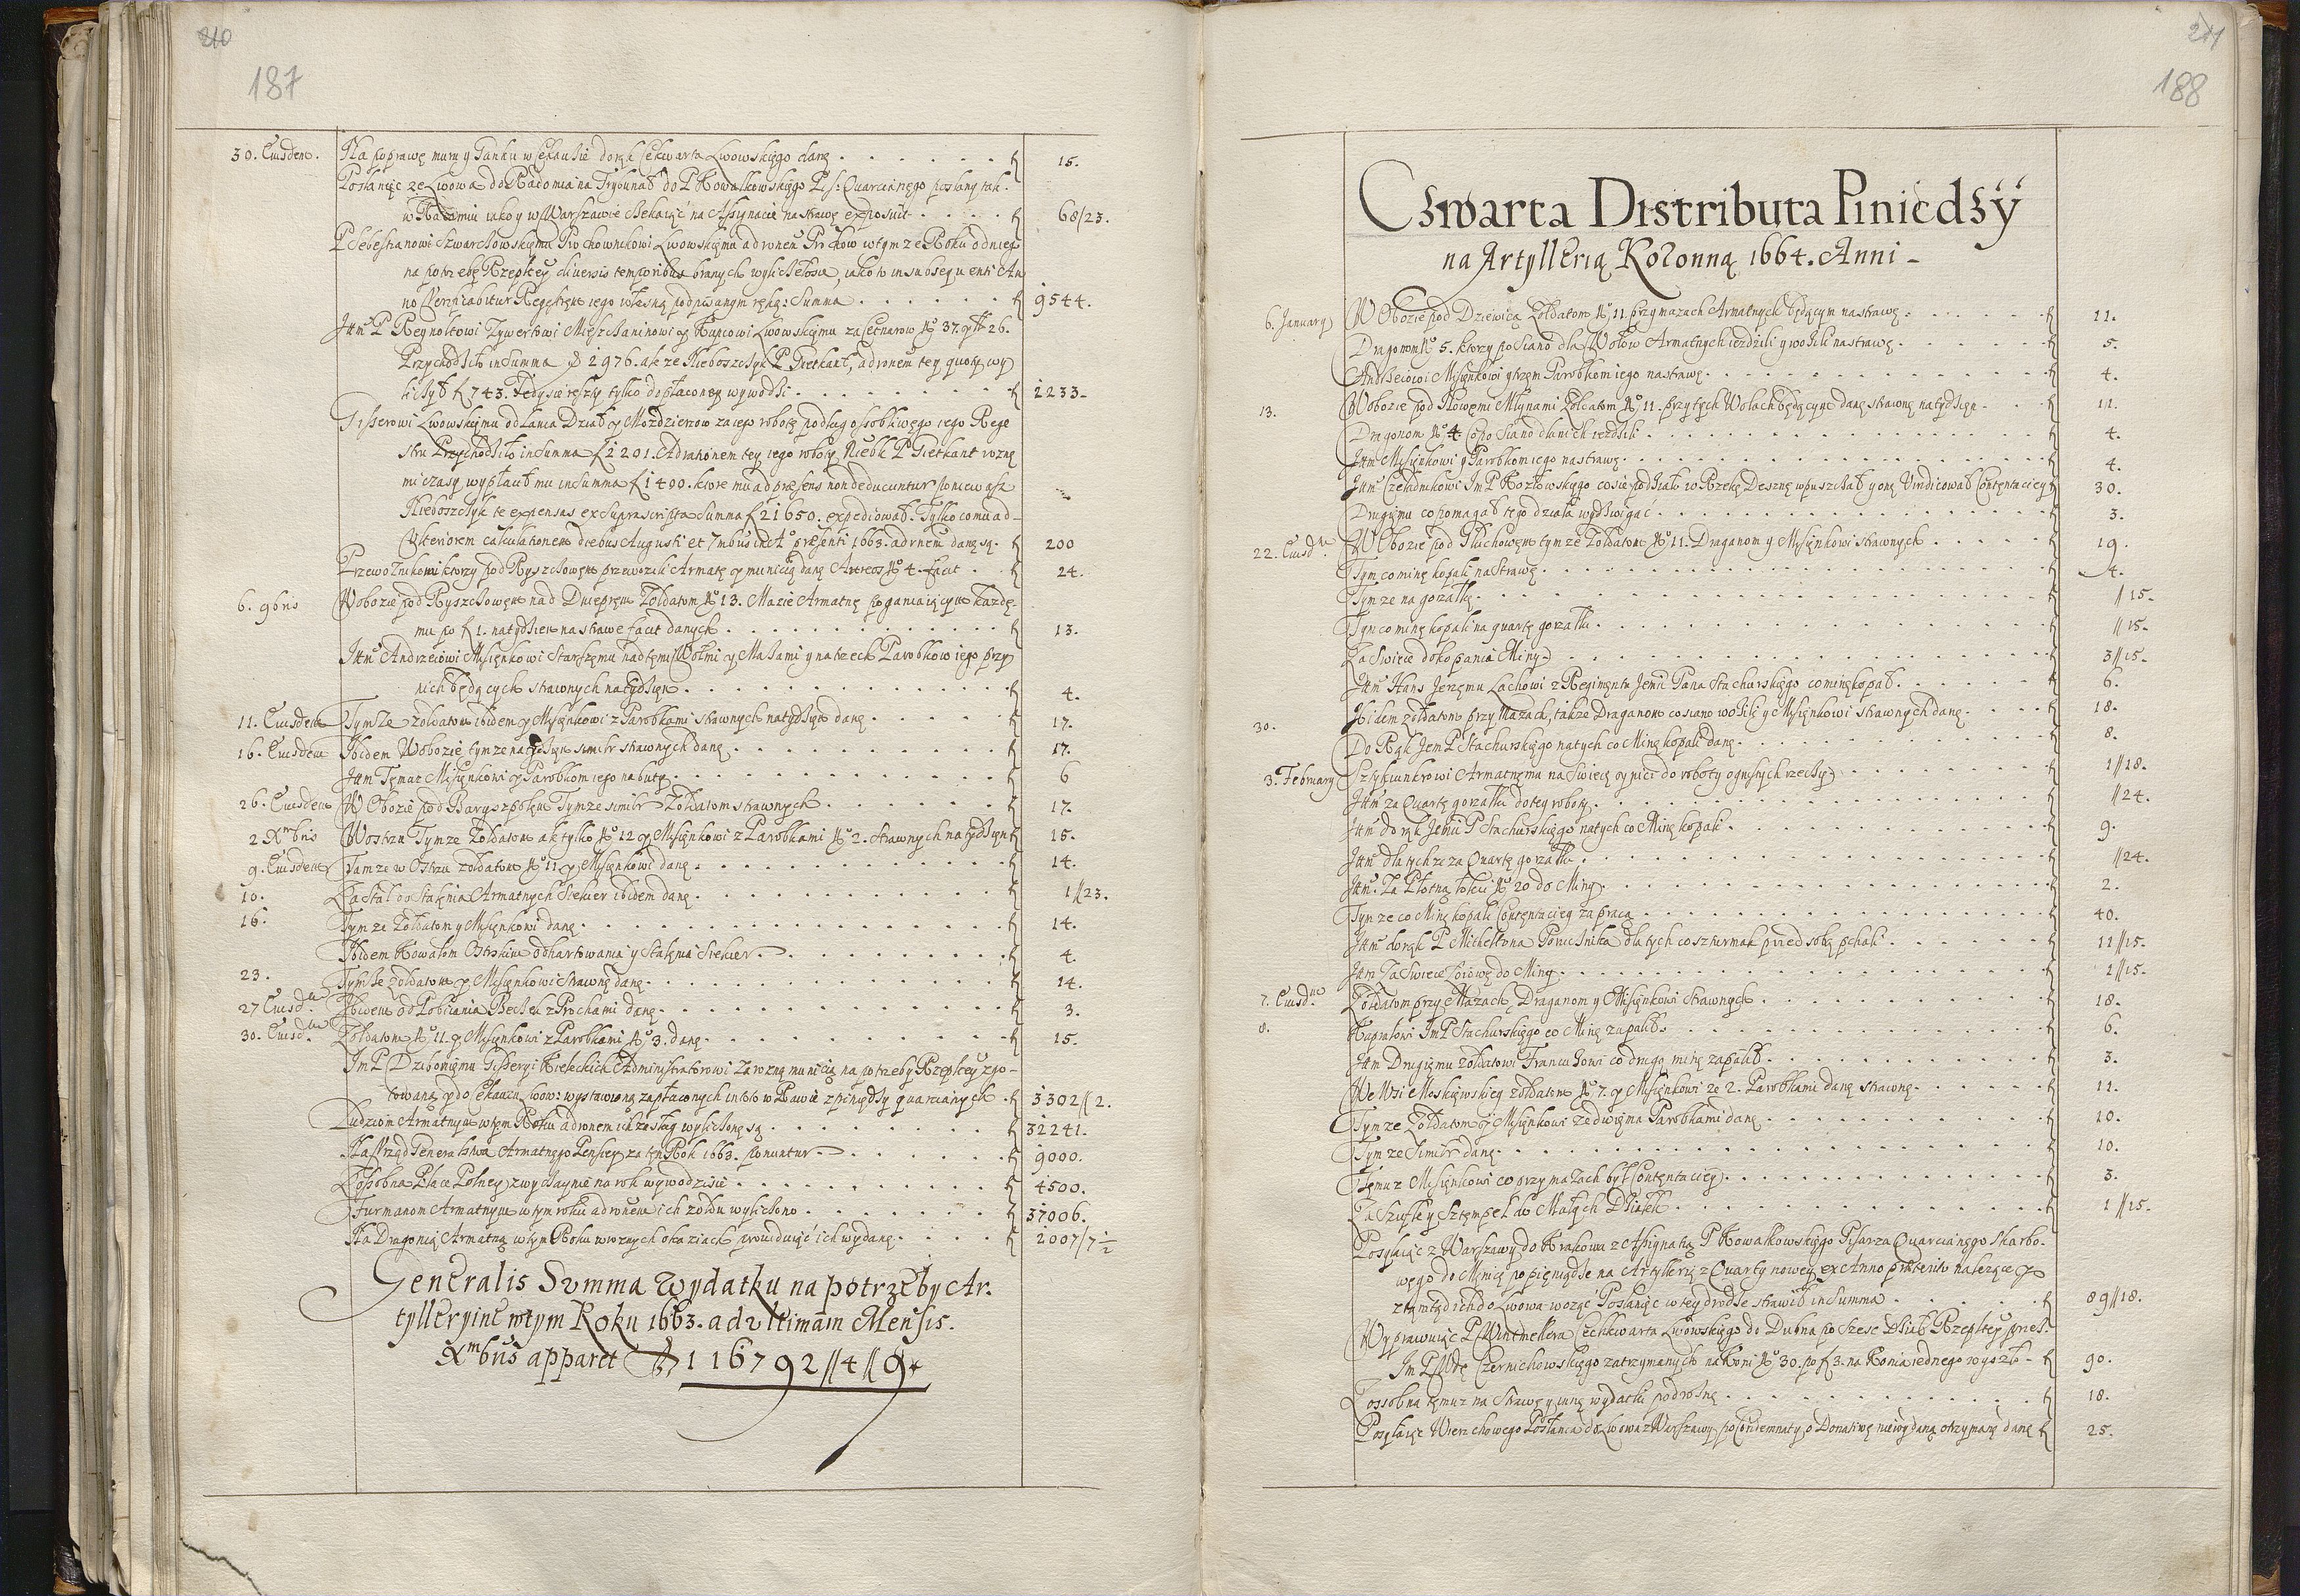 210
187
30. Eiusdem. Na poprawę muru y Ganku w Cekauzie do rąk Cekwarta Lwowskiego danę f 15.
Posłaniec ze Lwowa do Radomia na Trybunał do P Kowalkowskiego Pis: Quarcianego posłany tak
w Radomiu iako y w Warszawie czekaiąc na Assignacie na strawę exposuit f 68//23.
P Sebestianowi Szwarczowskięmu Prochownikowi Lwowskięmu ad ronem Prochow w tym ze Roku od niego
na potrzebę Rzeptey diversis temporibus branych wyliczełosię, iako to in subsequenti An
no verificabitur Regestręm iego własną podpisanym ręką: Summa f 9544.
Ittm P Reynoltowi Zywertowi Mięszczaninowi y Kupcowi Lwowskięmu za Cetnarow No 37. y 26.
Przychodziło in Summa f 2976. ale ze Nieboszczyk P Gietkant, ad ronem tey quoty wy
liczył f 743. Tedy się reszty tylko dopłaconey wywodzi f 2233-
Gisserowi Lwowskięmu od Lania Dział y Mozdzierzow za iego robotę podług ossobliwego iego Rege
stru Przychodziło in Summa f 2201. Ad rationem tey iego roboty Niebk P Gietkant roznę
mi czasy wypłacił mu in Summa f 1400. ktore mu ad præsens non deducuntur poniewasz
Nieboszczyk te expensas ex suprascripta Summa f 21650. expediował. Tylko co mu ad
Ulteriorem calculationem diebus Augusti et 7mbris in Ao præsenti 1663. ad ronem danę są. f 200
Przewoznikowi ktory pod Ryszczowęm przewozili Armatę y municią danę Aureos No 4. facit f 24.
6. 9bris W obozie pod Ryszczowęm nad Dnieprem Zołdatom No 13. Mazie Armatnę poganiaiącym kazdę-
mu po f 1. na tydzien na strawę facit danych f 13.
Ittm Andrzeiowi Misięnkowi Starszęmu nad tęmi Wołmi y Mazami y na trzech Parobkow iego przy
nich będących strawnych na tydzięn f 4.
11. Eiusdem Tymze zołdatom ibidem y Misięnkowi z Parobkami strawnych na tydzięn danę f 17.
16. Eiusdem Ibidem W obozie tymze na tydzięn similr strawnych danę f 17.
Ittm Tęmuz Misięnkowi y Parobkom iego na buty f 6
26. Eiusdem W Obozie pod Baryszpolęm Tymze similr Zołdatom strawnych f 17.
2. Xmbris W ostrzu Tymze Zołdatom ale tylko No 12 y Misięnkowi z Parobkami No 2. strawnych na tydzięn f 15.
9. Eiusdem Tamze w Ostrzu zołdatom No 11 y Misięnkowi danę f 14.
10. Za Stal do Stalęnia Armatnych Siekier ibidem danę f 1//23.
16. Tym ze Zołdatom y Misięnkowi danę f 14.
Ibidem Kowalom Ostrskim od hartowania y Stalęnia Siekier f 4.
23. Tymze zołdatom y Misięnkowi Strawnę danę f 14.
27 Eiusdm Ibidem od Pobiiania Beczek z Prochami danę f 3.
30. Eiusdm Zołdatom No 11. y Misięnkowi z Parobkami No 3. danę f 15.
Im P Dzibonięmu Gisseryi Kieleckich Administratorowi za roznę municią na potrzeby Rzeptey zgo-
towaną y do Cekauzu Lwow: wystawioną zapłaconych in toto w Rawie z pięniędzy quarcianych f 3302//2.
Ludziom Armatnym w tym Roku ad ronem ich zasług wyliczonę są f 32241.
Na Urząd Generalstwa Armatnęgo Pensiey za tęn Rok 1663. ponuntur f 9000.
Zossobna Płace Polney zwyczaynie na rok wywodzi sie f 4500.
Furmanom Armatnym w tym roku ad ronem ich zołdu wyliczono f 37006.
Na Dragonią Armatną w tym Roku w roznych okaziach prowiduiąc ich wydanę f 2007/7½
Generalis Summa Wydatku na potrzeby Ar.
tylleryine w tym Roku 1663. ad ultimam Mensis.
Xmbris apparet f 116792//4//9
211
188
Czwarta Distributa Piniędzÿ
na Artyllerią Koronną 1664. Anni -
6. January W Obozie pod Dziewicą Zołdatom No 11. przy mazach Armatnych będącym na strawę f 11.
Dragonom No 5. ktorzy po Siano dla Wołow Armatnych iezdzili y wozili na strawę f 5.
Andrzeiowi Misięnkowi y trzęm Parobkom iego na strawę f 4.
13. W obozie pod Nowęmi Młynami Zołdatom No 11. przy tych Wołach będącym danę strawnę na tydzięn f 11.
Dragonom No 4 co po Siano dla nich iezdzili f 4.
Ittm Misięnkowi y Parobkom iego na strawę f 4.
Ittm Czeladnikowi Im P Kozłowskiego co się podziało w Rzekę Desznę wpuszczał y onę Vindicował Contentaciey f 30.
Drugięmu co pomagał tego działa wydzwigac f 3.
22. Eiusdm W Obozie pod Głuchowęm tym ze Zołdatom No 11. Draganom y Misięnkowi strawnych f 19.
Tym co minę kopali na Strawę f 4.
Tym ze na gorzałkę f //15-
Tym co minę kopali na quartę gorzałki f //15-
Za Swiece do kopania Miny f 3//15-
Ittm Hans Jerzęmu Lachowi z Regimęntu Jemci Pana Stachurskięgo co minę kopał f 6.
30. Ibidem zołdatom przy Mazach, takze Draganom co siano wozili y Misięnkowi strawnych danę f 18.
Do Rąk Jem P Stachurskięgo na tych co Minę kopali danę f 8.
3. February Sztykiunkrowi Armatnęmu na Swiecę y nici do roboty ognistych rzeczÿ f 1//18.
Ittm za Quartę gorzałki do tey roboty f //24.
Ittm do rąk Jemci P Stachurskięgo na tych co Minę kopali f 9.
Ittm dla tychze za Quartę gorzałki f //24.
Ittm. Za Płotna łokci No 20 do Miny f 2.
Tym ze co Minę kopali Contętaciey za pracą f 40.
Ittm do rąk P Michelsona Porucznika dla tych co szturmak przed sobą pchali f 11//15-
Ittm Za Swiece Łoiowę do Miny f 1//15-
7. Eiusdm Zołdatom przy Mazach, Draganom y Misięnkowi Strawnych f 18.
8. Kapralowi Im P Stachurskięgo co Minę zapalił f 6.
Ittm Drugięmu zołdatowi Francuzowi co drugą minę zapalił f 3.
We Wsi Moskięwskiey zołdatom No 7. y Misięnkowi ze 2. Parobkami danę strawnę f 11.
Tym ze Zołdatom y Misięnkowi ze dwięma Parobkami danę f 10.
Tym ze Similr danę f 10.
Tęmuz Misięnkowi co przy mazach był Contętaciey f 3.
Za Szufle y Sztęmpel do Małych Działek f 1//15-
Posyłaiąc z Warszawy do Krakowa z Assignatią P Kowalkowskięgo Pisarza Quarcianęgo Skarbo-
wego do Mynicę po pięniądze na Artyllerią z Quarty nowey ex Anno præterito nalezące y
ztamtąd ich do Lwowa woząc Posłaniec w tey drodze strawił in Summa f 89//18.
Wyprawuiąc P Wintmellera Cechkwarta Lwowskięgo do Dubna po Szesc Dział Rzeptey przez
Im P Wdę Czernichowskięgo zatrzymanych na Koni No 30. po f 3. na Konia iednego wyszło f 90.
Zossobna tęmuz na Strawę y innę wydatki podroznę f 18.
Posyłaiąc Wierzchowego Posłańca do Lwowa z Warszawy po Condemnaty o Donatiwę niewydaną otrzymanę danę f 25.